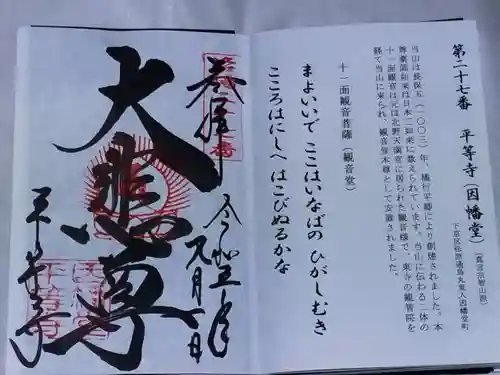 第二十七番 平等寺（因幡堂）
（真言宗智山派）
下京区松原通烏丸東入因幡堂町
当山は長保五（一〇〇三）年、橘行平卿により創建されました。本
尊薬師如来は日本三如来に数えられています。当山に伝わる二体の
十一面観音は元は北野天満宮に居られた観音様で、東寺の観智院を
経て当山に来られ、観音堂本尊として安置されました。
十一面観音菩薩（観音堂）
まよいいで ここはいなばの ひがしむき
こころはにしへ はこびぬるかな
奉拝
令和五年
元月一日
大悲尊
平等寺